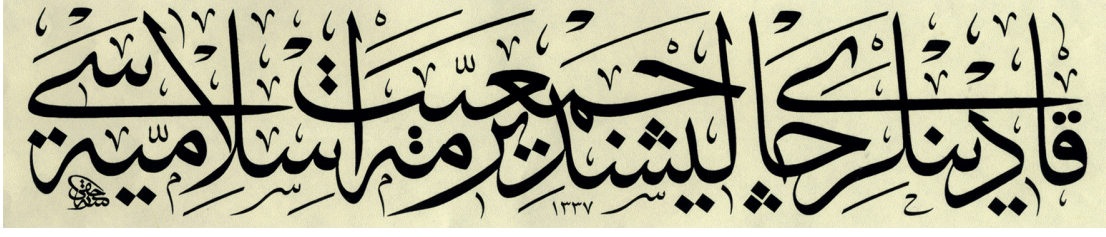 قادينلرى چاليشديرمه جمعيت اسلاميه سى
١٣٣٧